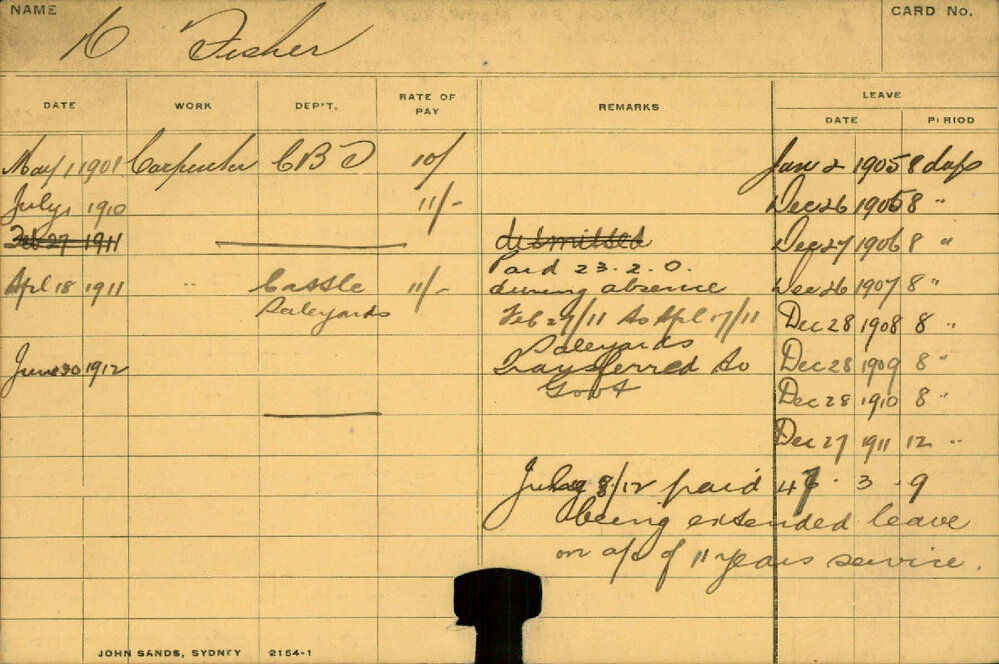 NAME
Fisher
CARD No.
DATE WORK DEP'T. RATE OF PAY REMARKS LEAVE
DATE PERIOD
May 1 1901 Carpenter C B D 10/ Jan 2 1905 8 days
July 1 1910 11/- Dec 26 1905 8 "
Feb 27 1911 dismissed Dec 27 1906 8 "
Paid 23.2.0.
Apl 18 1911 " Cattle 11/- during absence Dec 26 1907 8 "
Saleyards Feb 27/11 to Apl 17/11 Dec 28 1908 8 "
Saleyards
June 30 1912 Transferred to Dec 28 1909 8 "
Govt Dec 28 1910 8 "
Dec 27 1911 12 "
8/12 paid 47 . 3 . 9
being extended leave
on a/c of 11 years service.
JOHN SANDS, SYDNEY 2154-1